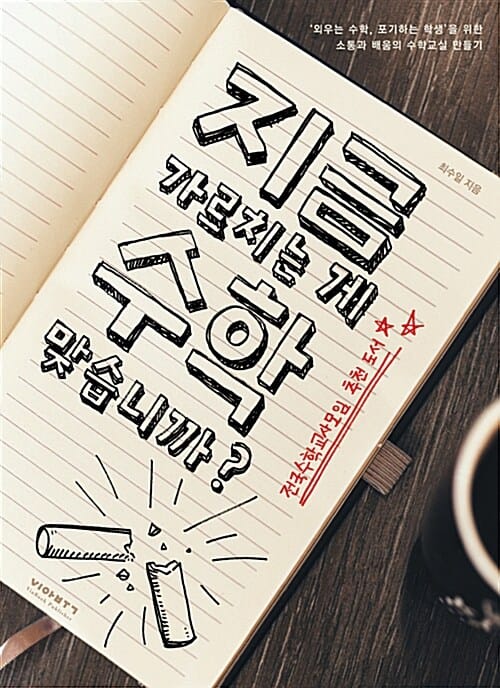 '외우는 수학, 포기하는 학생'을 위한
소통과 배움의 수학교실 만들기
최수일 지음
지금
가르치는 게
수학
맞습니까?
전국수학교사모임 추천 도서
비아북
ViaBook Publisher